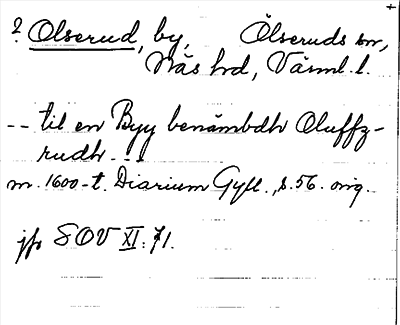 ? Olserud, by, Ölseruds sn,
Näs hd, Värml. l.
-- til en Byy benämbdh Oluffz-
rudh ---
m. 1600-t. Diarium Gyll., s. 56. orig.
jfr SOV XI: 71.